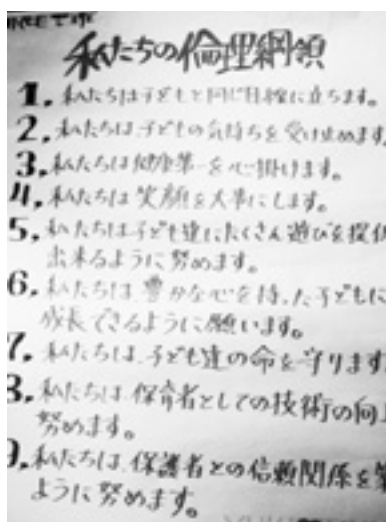 私たちの倫理綱領
1. 私たちは子どもと同じ目線に立ちます。
2. 私たちは子どもの気持ちを受け止めます
3. 私たちは健康第一を心掛けます。
4. 私たちは笑顔を大事にします。
5. 私たちは子ども達にたくさん遊びを提供
出来るように努めます。
6. 私たちは、豊かな心を持った子どもに
成長できるように願います。
7. 私たちは、子ども達の命を守ります
8. 私たちは、保育者としての技術の向上
努めます。
9. 私たちは、保護者との信頼関係を築
ように努めます。